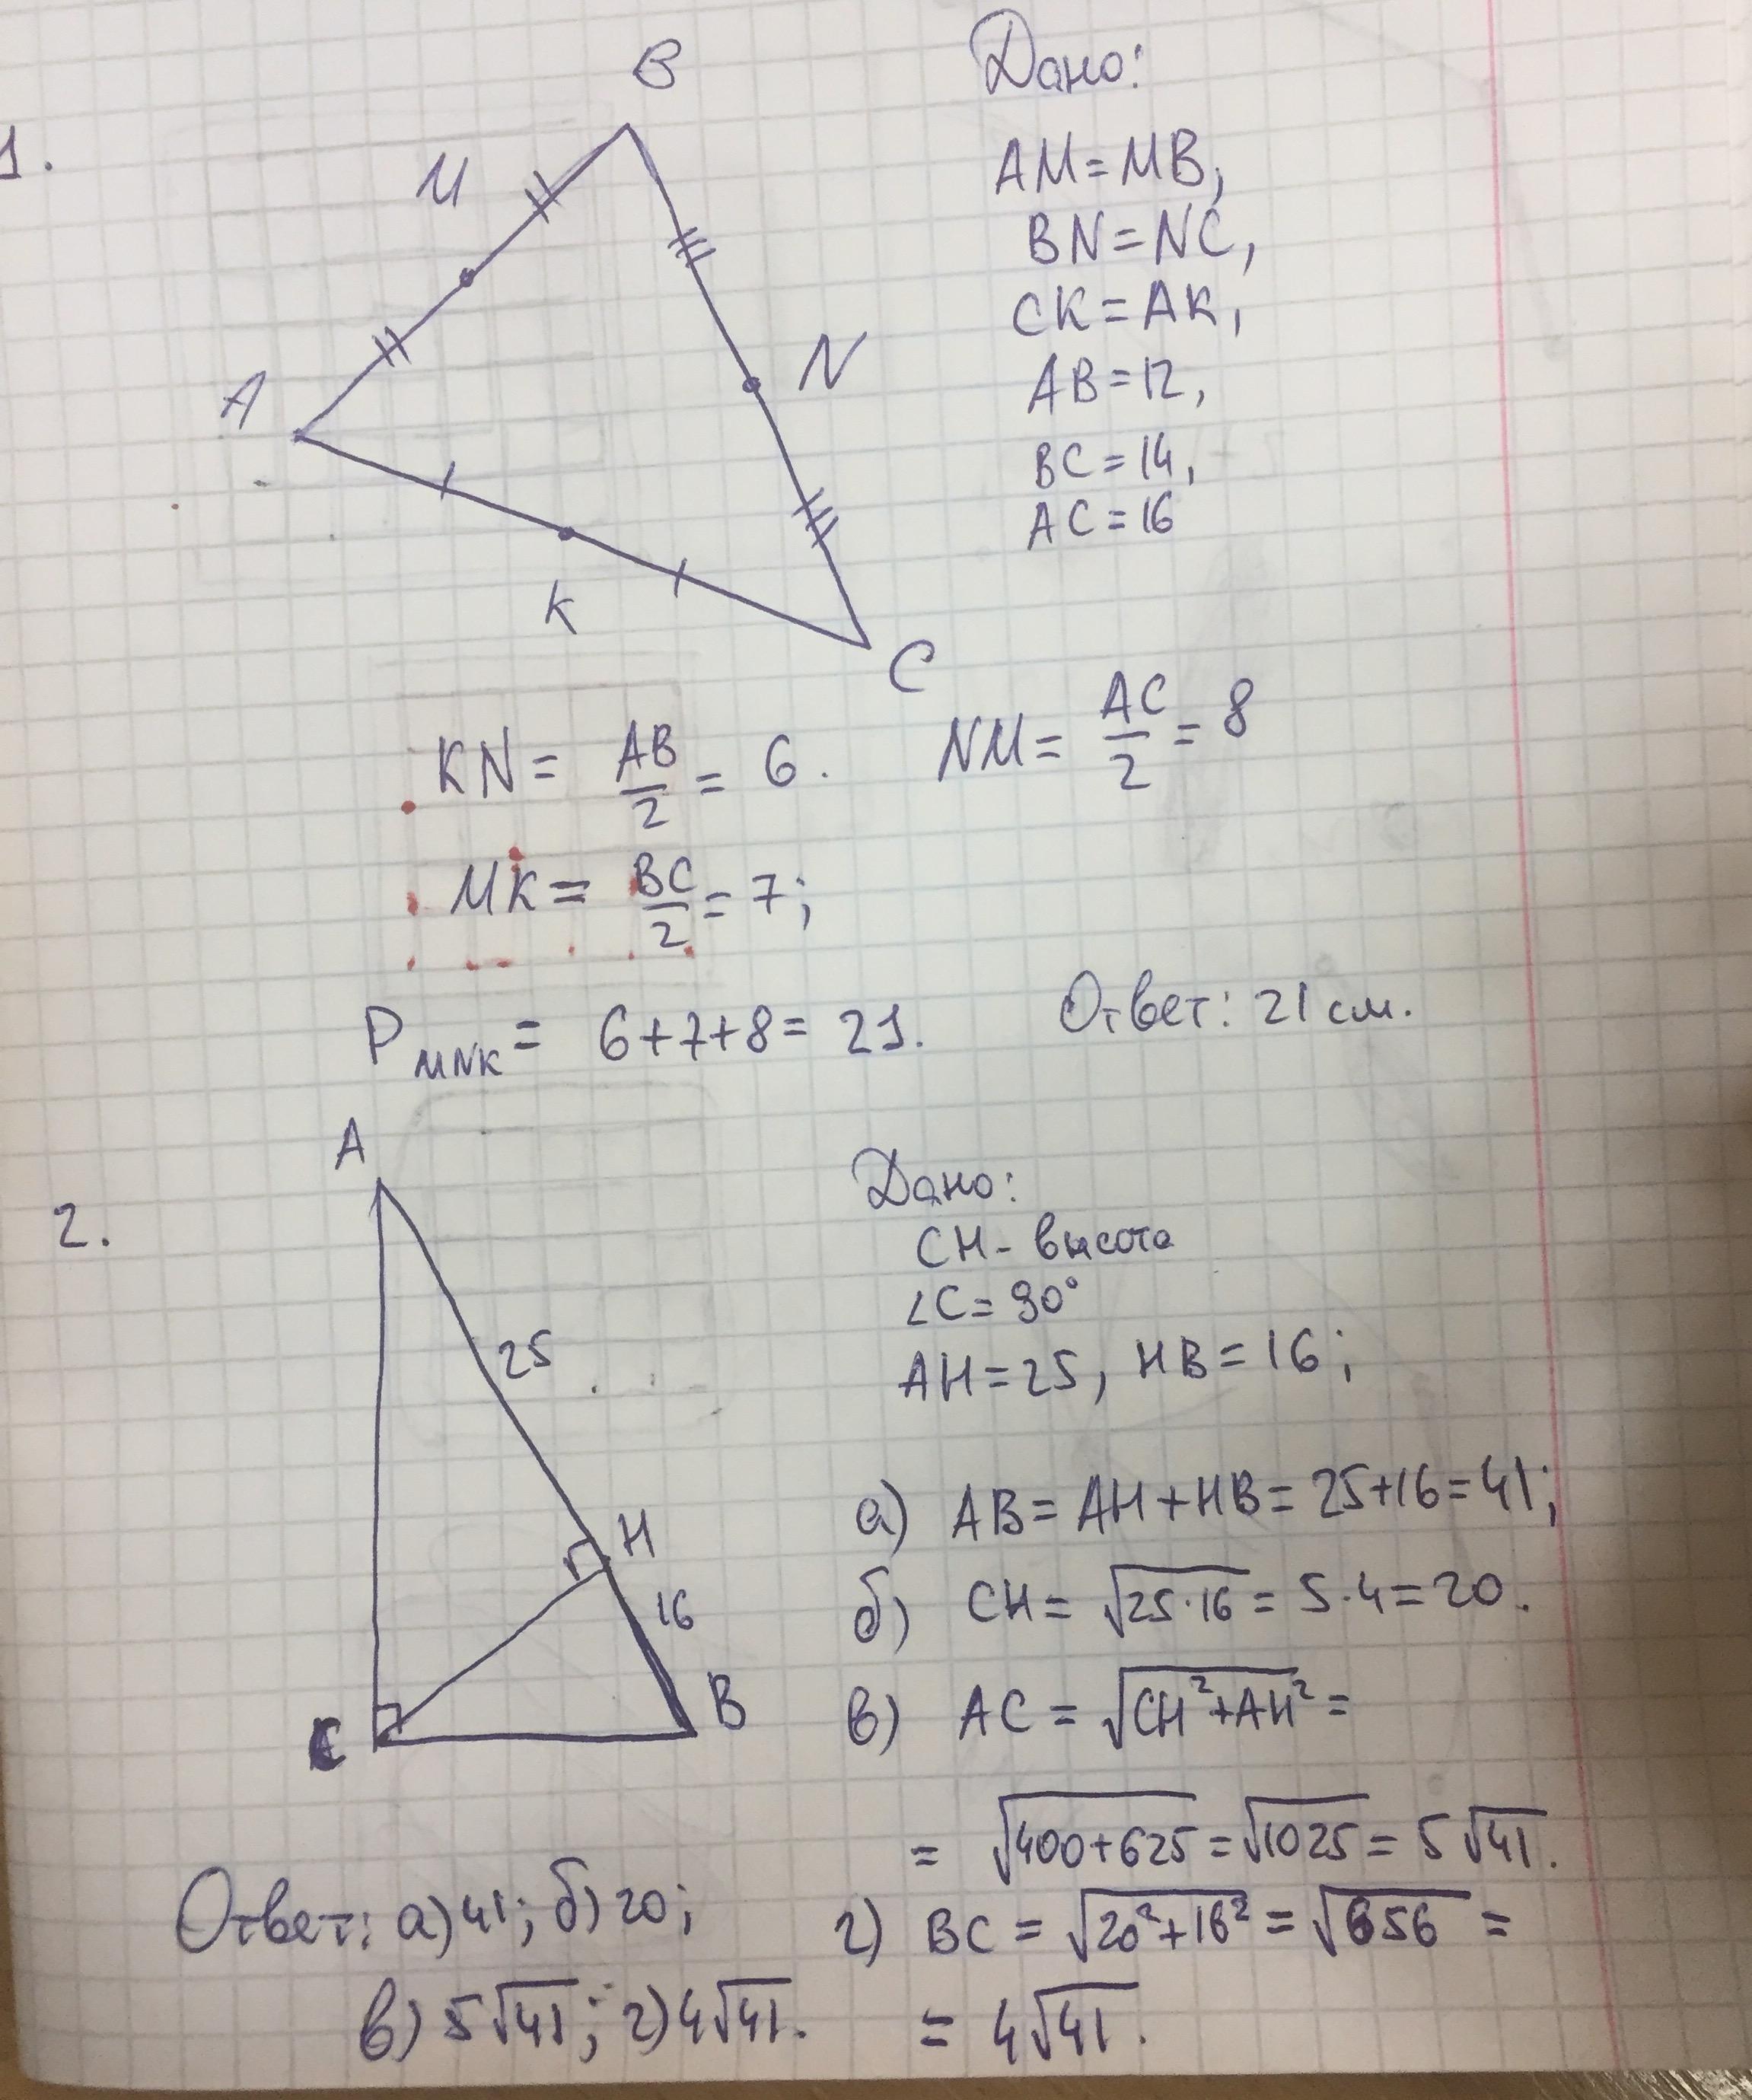 1.
B
M
N
A
K
C
Дано:
AM = MB,
BN = NC,
CK = AK,
AB = 12,
BC = 14,
AC = 16
KN = AB/2 = 6. NM = AC/2 = 8
MK = BC/2 = 7;
P MNK = 6+7+8 = 21. Ответ: 21 см.
2.
A
25
H
16
B
C
Дано:
CH - высота
∠C = 90°
AH = 25, HB = 16;
а) AB = AH + HB = 25+16 = 41;
б) CH = √25·16 = 5·4 = 20.
в) AC = √CH²+AH² =
= √400+625 = √1025 = 5√41.
г) BC = √20²+16² = √656 =
= 4√41.
Ответ: а) 41; б) 20;
в) 5√41; г) 4√41.